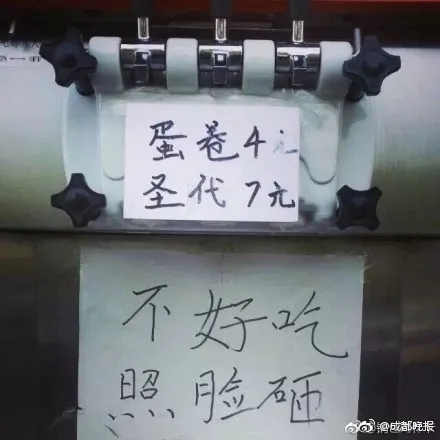 蛋卷4元
圣代7元
不好吃
照脸砸
@成都晚报